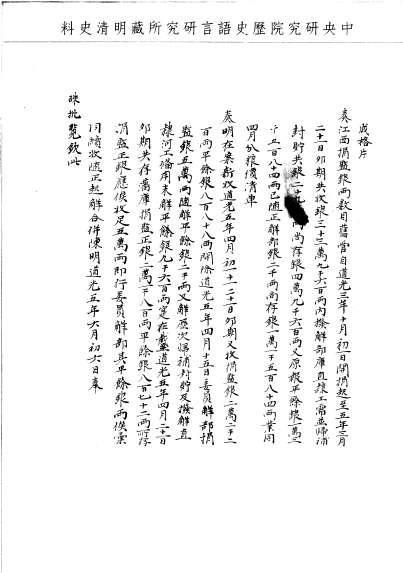 中央研究院歷史語言研究所藏明清史料
成格片
奏江西捐監銀兩數目舊管自道光三年十月初一日開捐起至五年三月
二十一日卯期共收銀三十三萬九千六百兩內撥解部庫直隸工需並歸補
封貯共銀二十九萬兩尚存銀四萬九千六百兩又原報平餘銀一萬三
千二百八十四兩已隨正解部銀二千兩尚存銀一萬一千五百八十四兩業同
四月分糧價清單
奏明在案新收道光五年四月初一十一二十一日卯期又收捐監銀二萬二千二
百兩平餘銀八百八十八兩開除道光五年四月十五日委員解部捐
監銀五萬兩隨解平餘銀二千兩又解歷次歸補封貯及撥解直
隸河工備用未解平餘銀九千六百兩定在截至道光五年四月二十一日
卯期共存藩庫捐監正銀二萬一千八百兩平餘銀八百七十二兩所存
捐監正銀應俟收足五萬兩即行委員解部其平餘銀兩俟彙
同續收隨正起解合併陳明道光五年六月初六日奉
硃批覽欽此